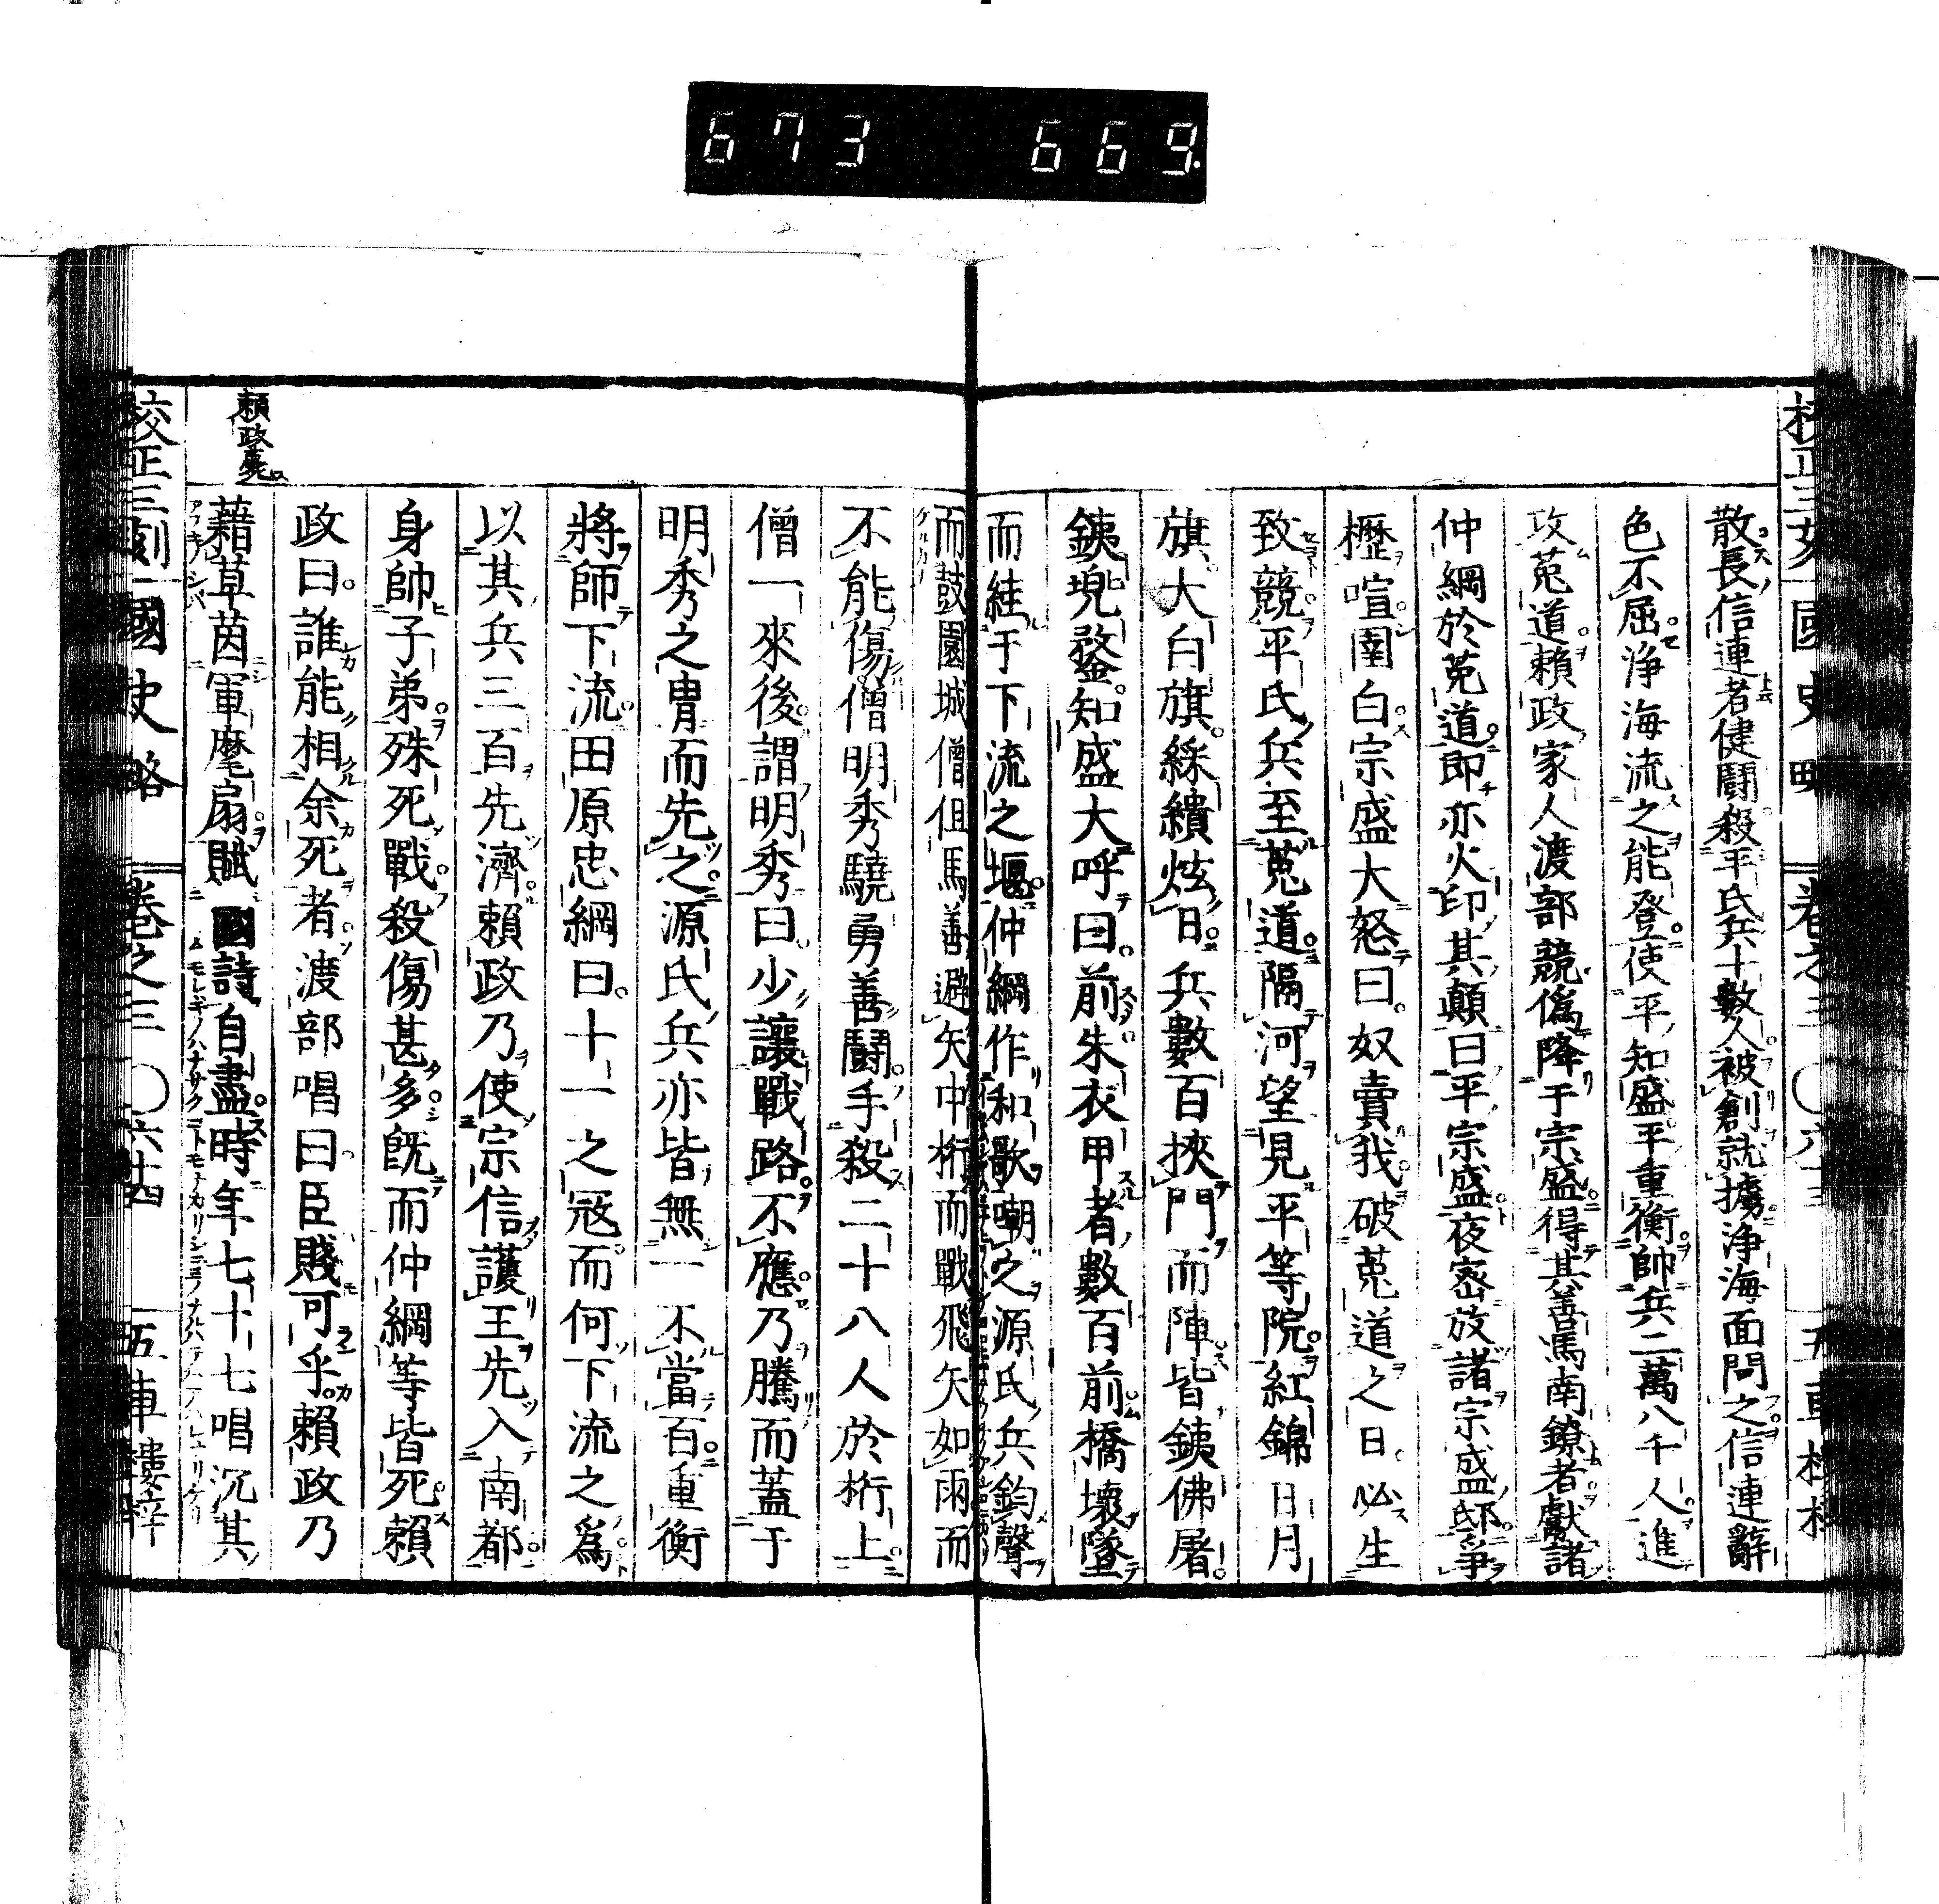 673 669
散長信連者健鬪殺平氏兵十數人被創就擄淨海面問之信連辭
色不屈淨海流之能登使平知盛平重衡帥兵二萬八千人進
攻菟道賴政家人渡部競僞降于宗盛得其善馬南鐐者獻諸
仲綱於菟道卽亦火印其顚曰平宗盛夜密放諸宗盛邸爭
櫪喧圉白宗盛大怒曰奴賣我破菟道之日必生
致競平氏兵至菟道隔河望見平等院紅錦日月
旗大白旗綵繢炫日兵數百挾門而陣皆銕佛屠
銕兜鍪知盛大呼曰前朱衣甲者數百前橋壞墜
而絓于下流之堰仲綱作和歌嘲之源氏兵鈞聲
而鼓園城僧但馬善避矢中桁而戰飛矢如雨而
不能傷僧明秀驍勇善鬪手殺二十八人於桁上
僧一來後謂明秀曰少讓戰路不應乃騰而蓋于
明秀之冑而先之源氏兵亦皆無一不當百重衡
將師下流田原忠綱曰十一之寇而何下流之爲
以其兵三百先濟賴政乃使宗信護王先入南都
身帥子弟殊死戰殺傷甚多旣而仲綱等皆死賴
政曰誰能相余死者渡部唱曰臣賤可乎賴政乃
賴政薨
藉草茵軍麾扇賦國詩自盡時年七十七唱沉其
校正三刻國史略 卷之三 〇六十四 五車樓梓